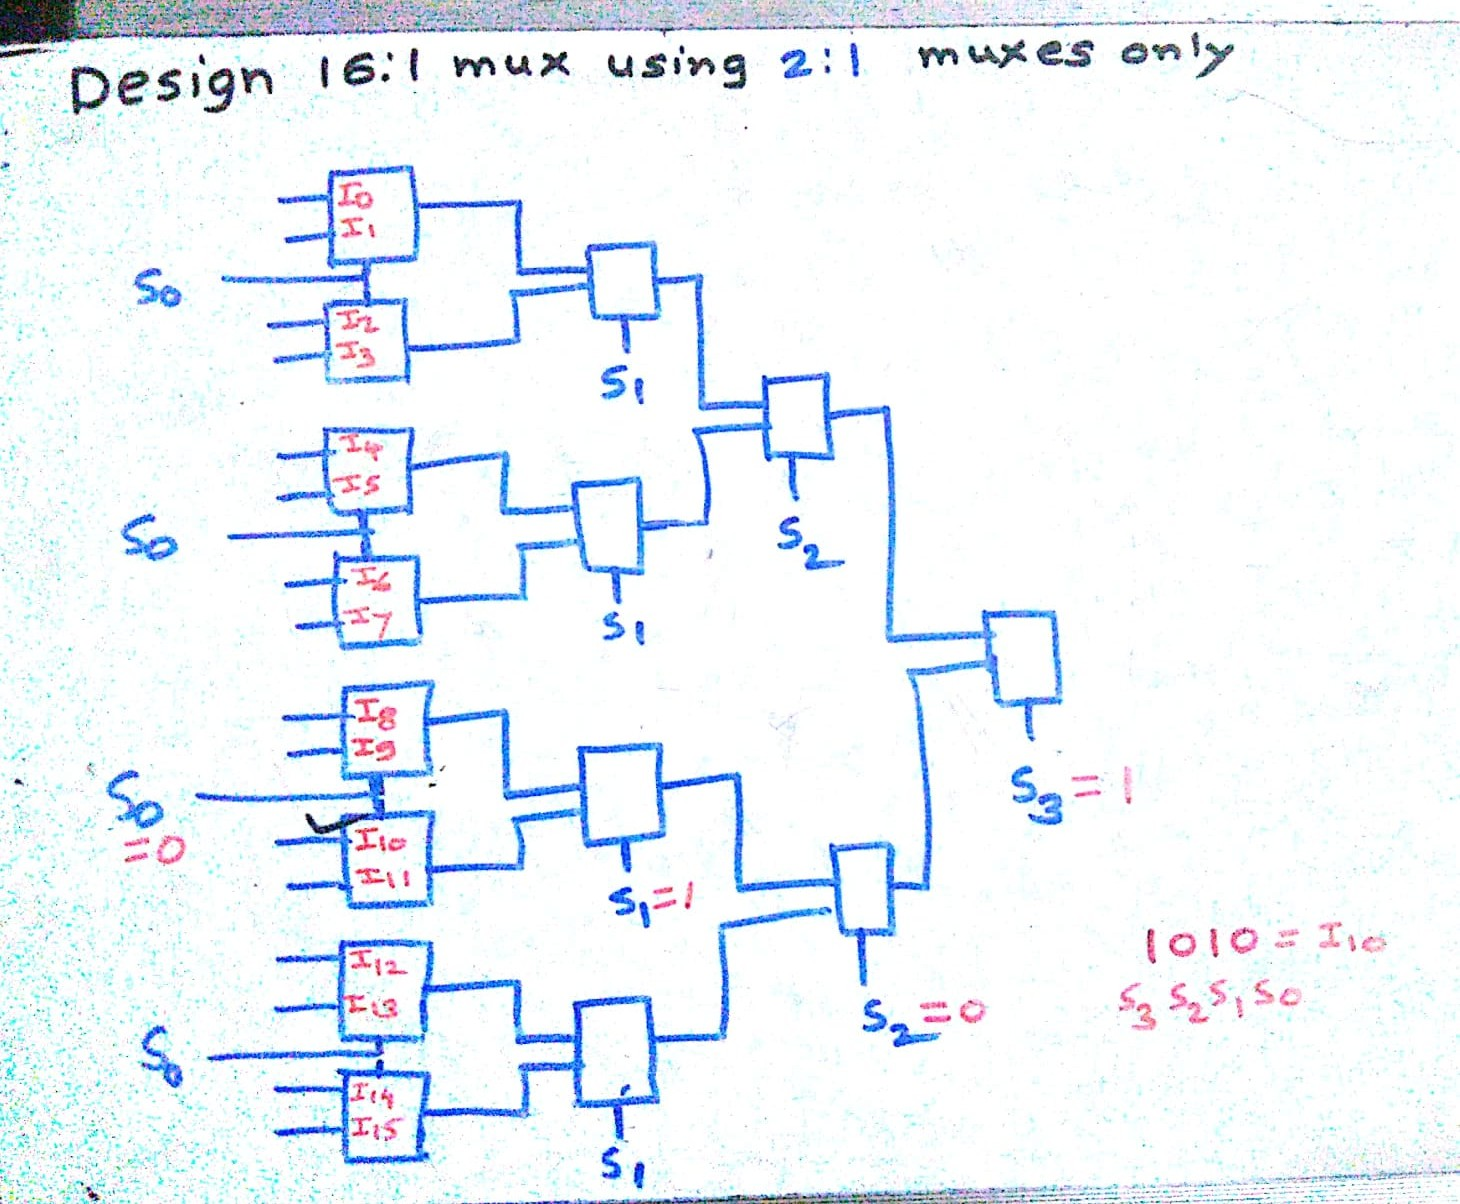 Design 16:1 mux using 2:1 muxes only
I0
I1
S0
I2
I3
S1
I4
I5
S0
I6
I7
S1
S2
I8
I9
S0
=0
I10
I11
S1=1
S3=1
I12
I13
S0
I14
I15
S1
S2=0
1010 = I10
S3 S2 S1 S0